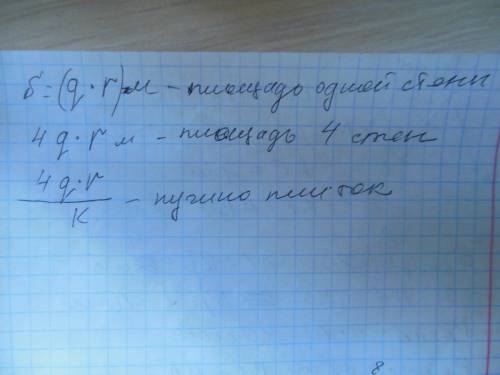 S = (q · r) м - площадь одной стены
4 q · r м - площадь 4 стен
4q·r / K - нужно плиток
8